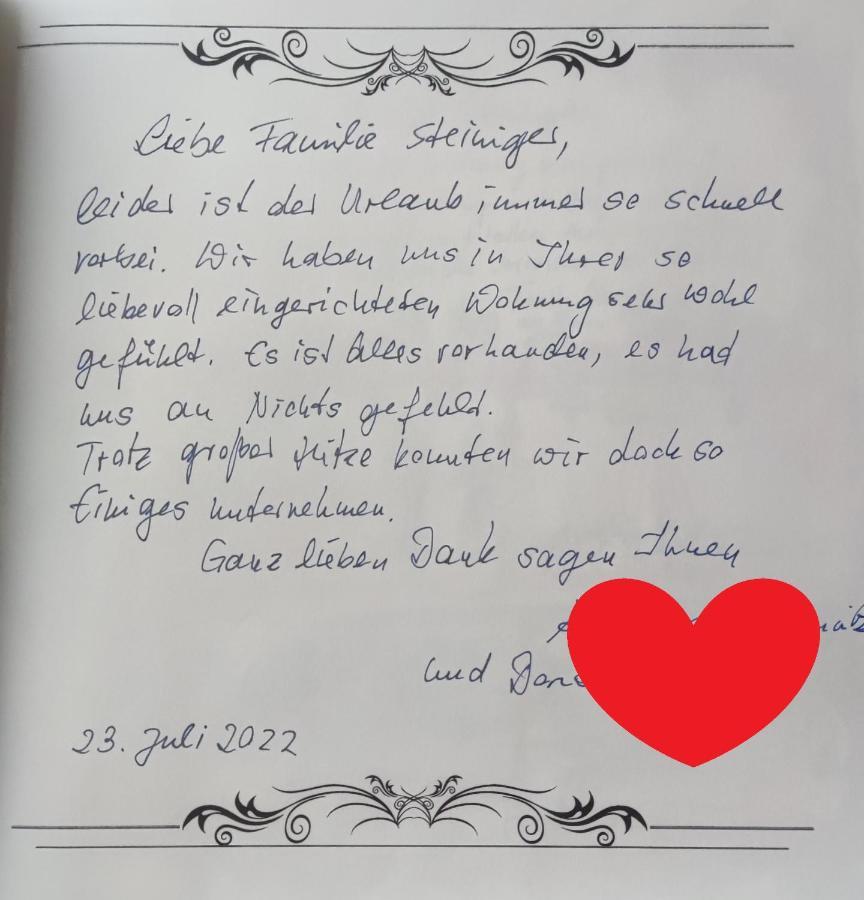 Liebe Familie Steiniger,
leider ist der Urlaub immer so schnell
vorbei. Wir haben uns in Ihrer so
liebevoll eingerichteten Wohnung sehr wohl
gefühlt. Es ist Alles vorhanden, es had
uns an Nichts gefehlt.
Trotz großer Hitze konnten wir doch so
Einiges unternehmen.
Ganz lieben Dank sagen Ihnen
und
23. Juli 2022